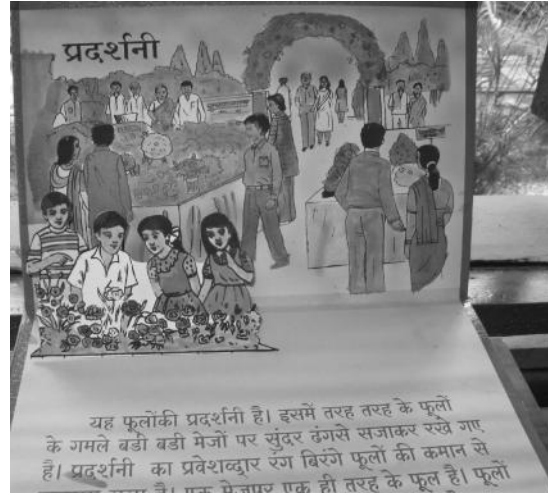 प्रदर्शनी
यह फूलोंकी प्रदर्शनी है। इसमें तरह तरह के फूलों
के गमले बडी बडी मेजों पर सुंदर ढंगसे सजाकर रखे गए
है। प्रदर्शनी का प्रवेशव्दार रंग बिरंगे फूलों की कमान से
है। एक मेजपर एक ही तरह के फूल है। फूलों